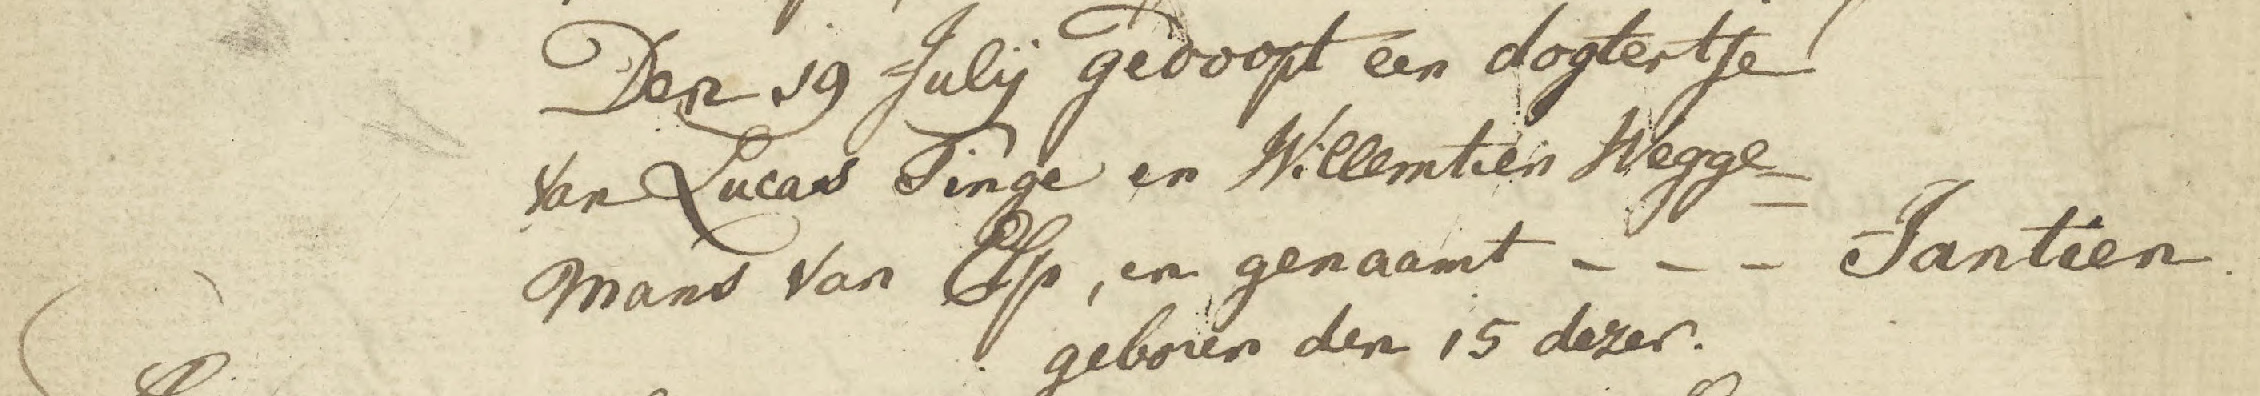 Den 19 Julij gedoopt een dogtertje
van Lucas Tinge en Willemtien Wegge=
mans van Elp, en genaamt - - - Jantien.
geboren den 15 dezer.